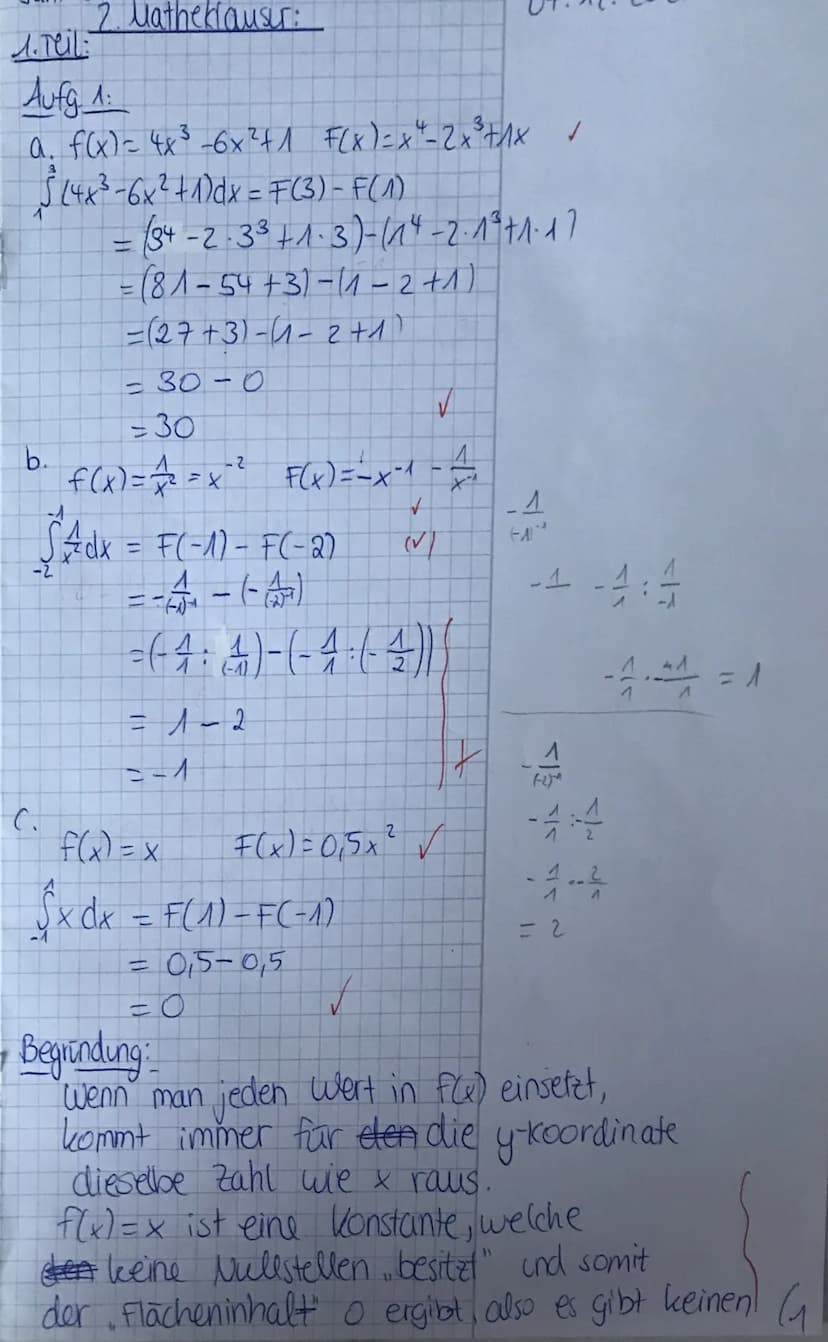 2. Matheklausur:
1. Teil:
Aufg 1:
a. f(x) = 4x³ - 6x² + 1 F(x) = x⁴ - 2x³ + 1x ✓
₁∫³ (4x³ - 6x² + 1)dx = F(3) - F(1)
= (3⁴ - 2·3³ + 1·3) - (1⁴ - 2·1³ + 1·1)
= (81 - 54 + 3) - (1 - 2 + 1)
= (27 + 3) - (1 - 2 + 1)
= 30 - 0
= 30 ✓
b. f(x) = 1/x² = x⁻² F(x) = -x⁻¹ - 1/x⁻¹
✓
₋₂∫⁻¹ 1/x² dx = F(-1) - F(-2) (✓)
= - 1/(-1)⁻¹ - (- 1/(-2)⁻¹)
= (- 1/1 : 1/(-1)) - (- 1/1 : (- 1/2))
= 1 - 2
= -1
- 1/(-1)⁻¹
-1 - 1/1 : 1/-1
- 1/1 · -1/1 = 1
- 1/(-2)⁻¹
- 1/1 : - 1/2
- 1/1 · - 2/1
= 2
c. f(x) = x F(x) = 0,5x² ✓
₋₁∫¹ x dx = F(1) - F(-1)
= 0,5 - 0,5
= 0 ✓
Begründung:
Wenn man jeden Wert in f(x) einsetzt,
kommt immer für den die y-koordinate
dieselbe Zahl wie x raus.
f(x) = x ist eine Konstante, welche
den keine Nullstellen „besitzt" und somit
der „Flächeninhalt" 0 ergibt, also es gibt keinen!